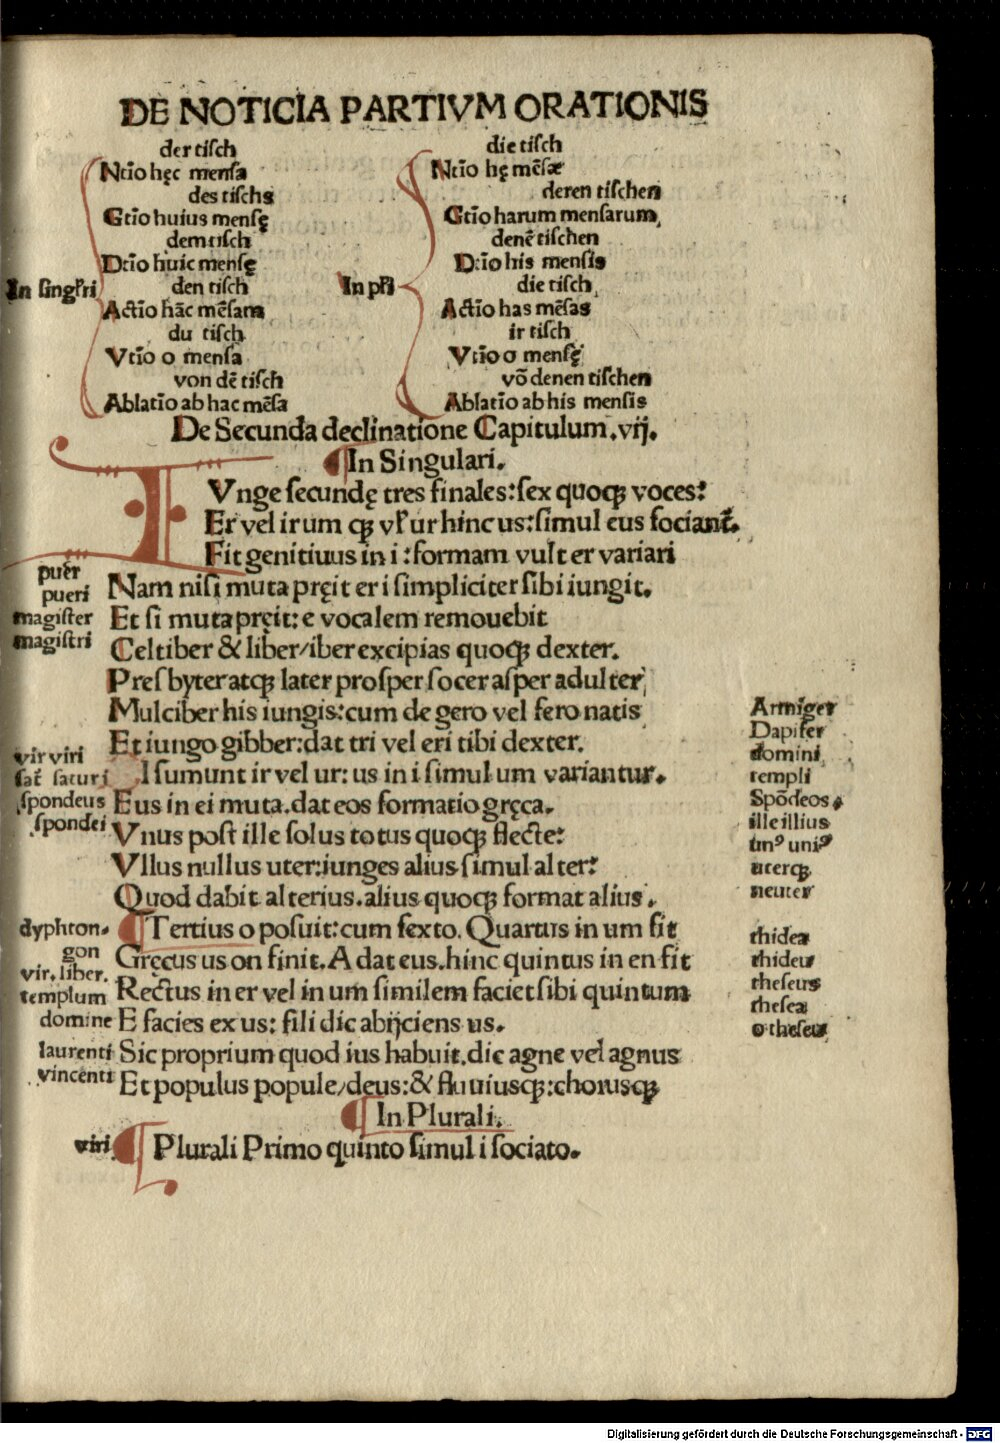 DE NOTICIA PARTIVM ORATIONIS
der tisch
Ntio hęc mensa
des tischs
Gtio huius mensę
dem tisch
Dtio huic mensę
In singl'ri
den tisch
Actio hāc mēsam
du tisch
Vtio o mensa
von dē tisch
Ablatio ab hac mēsa
die tisch
Ntio hę mēsæ
deren tischen
Gtio harum mensarum
denē tischen
Dtio his mensis
In plī
die tisch
Actio has mēsas
ir tisch
Vtio o mensę
vō denen tischen
Ablatio ab his mensis
De Secunda declinatione Capitulum.vij.
¶In Singulari.
IVnge secundę tres finales:sex quoqꝫ voces:
Er vel ir um qꝫ vl' ur hinc us:simul eus socianť.
Fit genitiuus in i:formam vult er variari
puer
pueri
Nam nisi muta pręit er i simpliciter sibi iungit.
magister
Et si muta pręit:e vocalem remouebit
magistri
Celtiber & liber/iber excipias quoqꝫ dexter.
Presbyter atqꝫ later prosper socer asper adulter
Mulciber his iungis:cum de gero vel fero natis
Armiger
Dapifer
Et iungo gibber:dat tri vel eri tibi dexter.
domini
vir viri
sať saturi
I sumunt ir vel ur: us in i simul um variantur.
templi
spondeus
Eus in ei muta.dat eos formatio gręca.
Spōdeos
spondei
Vnus post ille solus totus quoqꝫ flecte:
ille illius
unꝰ uniꝰ
Vllus nullus uter:iunges alius simul alter:
uterqꝫ
Quod dabit alterius.alius quoqꝫ format alius.
neuter
dyphton.
gon
¶Tertius o posuit:cum sexto.Quartus in um fit
thidea
Gręcus us on finit.A dat eus.hinc quintus in en fit
thideu
vir.liber.
templum
Rectus in er vel in um similem faciet sibi quintum
theseus
thesea
domine
E facies ex us: fili dic abijciens us.
o theseu
laurenti
Sic proprium quod ius habuit.dic agne vel agnus
vincenti
Et populus popule/deus:& fluuiusqꝫ:chorusqꝫ
¶In Plurali.
viri
¶Plurali Primo quinto simul i sociato.
Digitalisierung gefördert durch die Deutsche Forschungsgemeinschaft - DFG